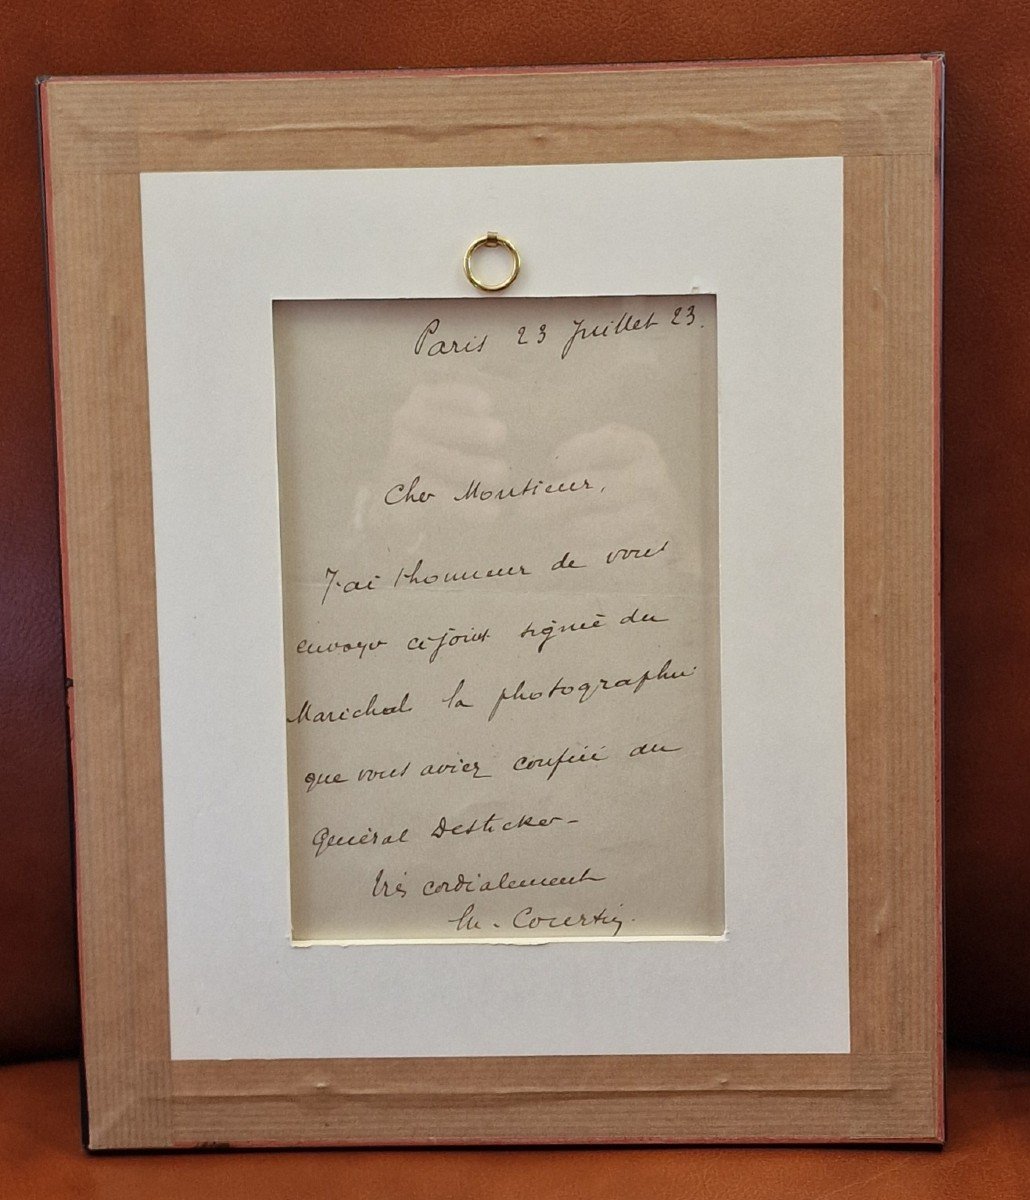 Paris 23 Juillet 23.
Cher Monsieur,
J'ai l'honneur de vous
envoyer ci joint signée du
Maréchal la photographie
que vous aviez confiée au
Général Desticker -
très cordialement
M. Courtin.